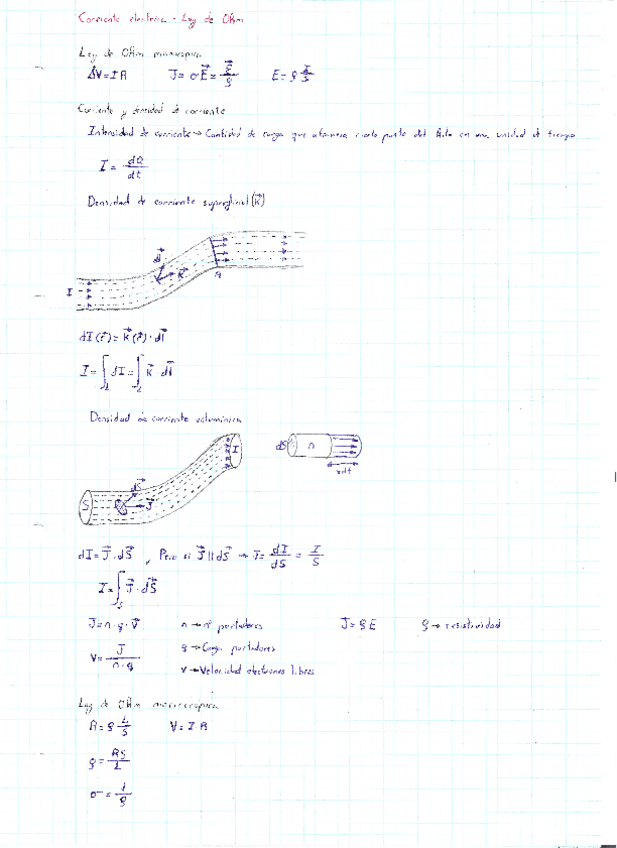 Corriente electrica - Ley de Ohm
Ley de Ohm microscopica
ΔV=I R J⃗=σE⃗=E⃗/ρ E=ρ I/S
Corriente y densidad de corriente
Intensidad de corriente→Cantidad de carga que atraviesa cierto punto del hilo en una unidad de tiempo
I = dQ/dt
Densidad de corriente superficial (K⃗)
dl⃗
K⃗
I
dI(r⃗)=K⃗(r⃗)·dl⃗
I=∫dI=∫K⃗ dl⃗
Densidad de corriente volumínica
I
dS n
dS⃗
vdt
S J⃗
dI=J⃗·dS⃗, Pero si J⃗ || dS⃗ → J=dI/dS = I/S
I=∫J⃗·dS⃗
J⃗=n·q·V⃗ n→nº portadores J=ρE ρ→resistividad
q→Carga portadores
V=J/n·q
v→Velocidad electrones libres
Ley de Ohm macroscopica
R=ρ L/S V=I R
ρ=RS/L
σ=1/ρ